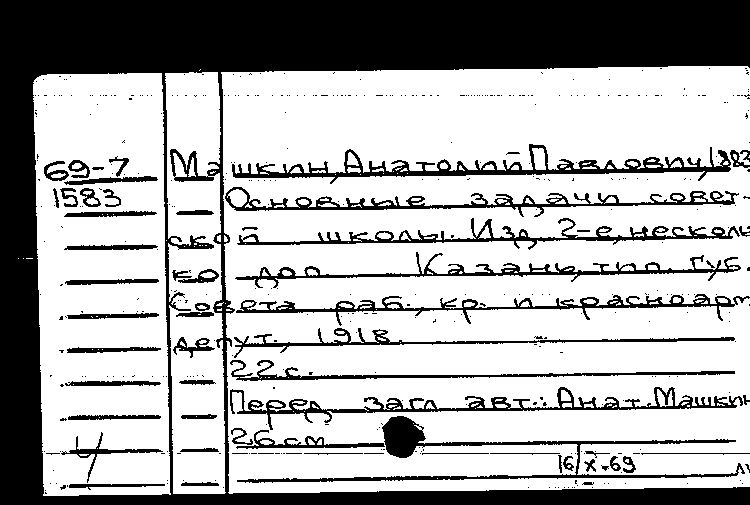 69-7 Машкин, Анатолий Павлович, 1883
1583 Основные задачи совет-
ской школы. Изд. 2-е, несколь
ко доп. Казань, тип. Губ.
Совета раб., кр. и красноарм
депут., 1918.
22 с.
Перед загл. авт.: Анат. Машкин
26 см
16/X-69